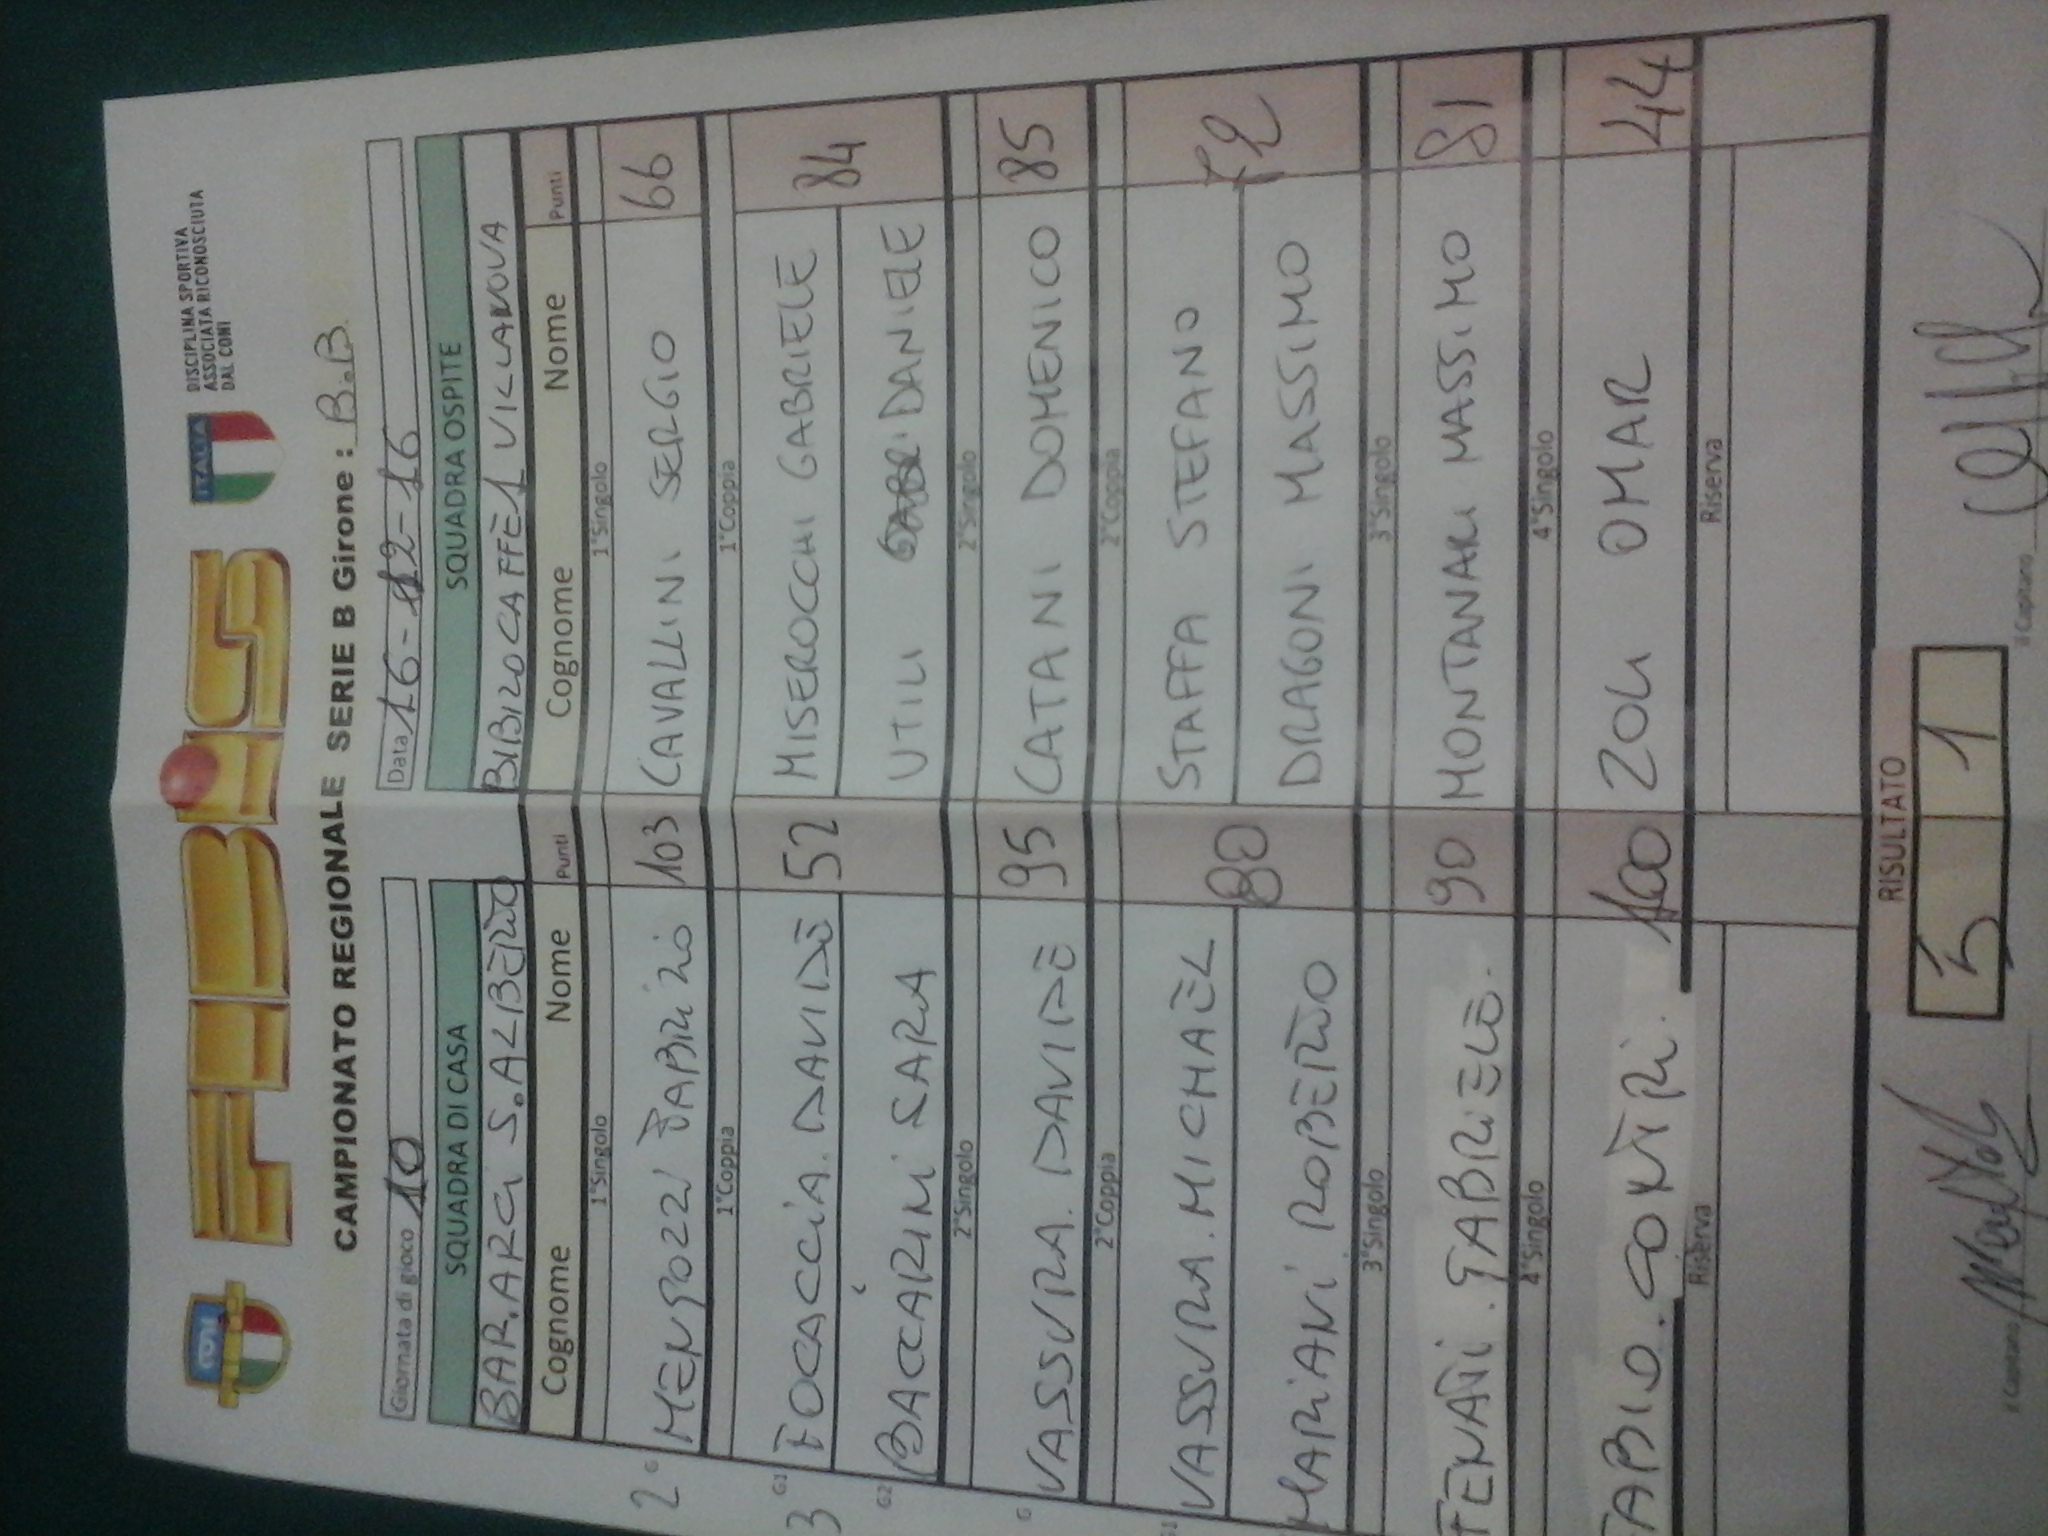 CONI
FIBiS
ITALIA
DISCIPLINA SPORTIVA
ASSOCIATA RICONOSCIUTA
DAL CONI
CAMPIONATO REGIONALE SERIE B Girone : B.B
Giornata di gioco 10 Data 16-12-16
SQUADRA DI CASA SQUADRA OSPITE
BAR.ARCI S.ALBERTO BIBIZOCAFFÈ1 VILLANOVA
Cognome Nome Punti Cognome Nome Punti
1°Singolo 1°Singolo
2 G MENGOZZI FABRIZIO 103 CAVALLINI SERGIO 66
1°Coppia 1°Coppia
3 G1 FOCACCIA.DAVIDE 52 MISEROCCHI GABRIELE 84
G2 BACCARINI SARA UTILI DANIELE
2°Singolo 2°Singolo
G VASSURA.DAVIDE 95 CATANI DOMENICO 85
2°Coppia 2°Coppia
VASSURA.MICHAEL 80 STAFFA STEFANO 72
MARIANI ROBERTO DRAGONI MASSIMO
3°Singolo 3°Singolo
FENATI.GABRIELE. 90 MONTANARI MASSIMO 81
4°Singolo 4°Singolo
FABIO.CONTRI. 100 ZOLI OMAR 44
Riserva Riserva
RISULTATO
5 1
il Capitano il Capitano